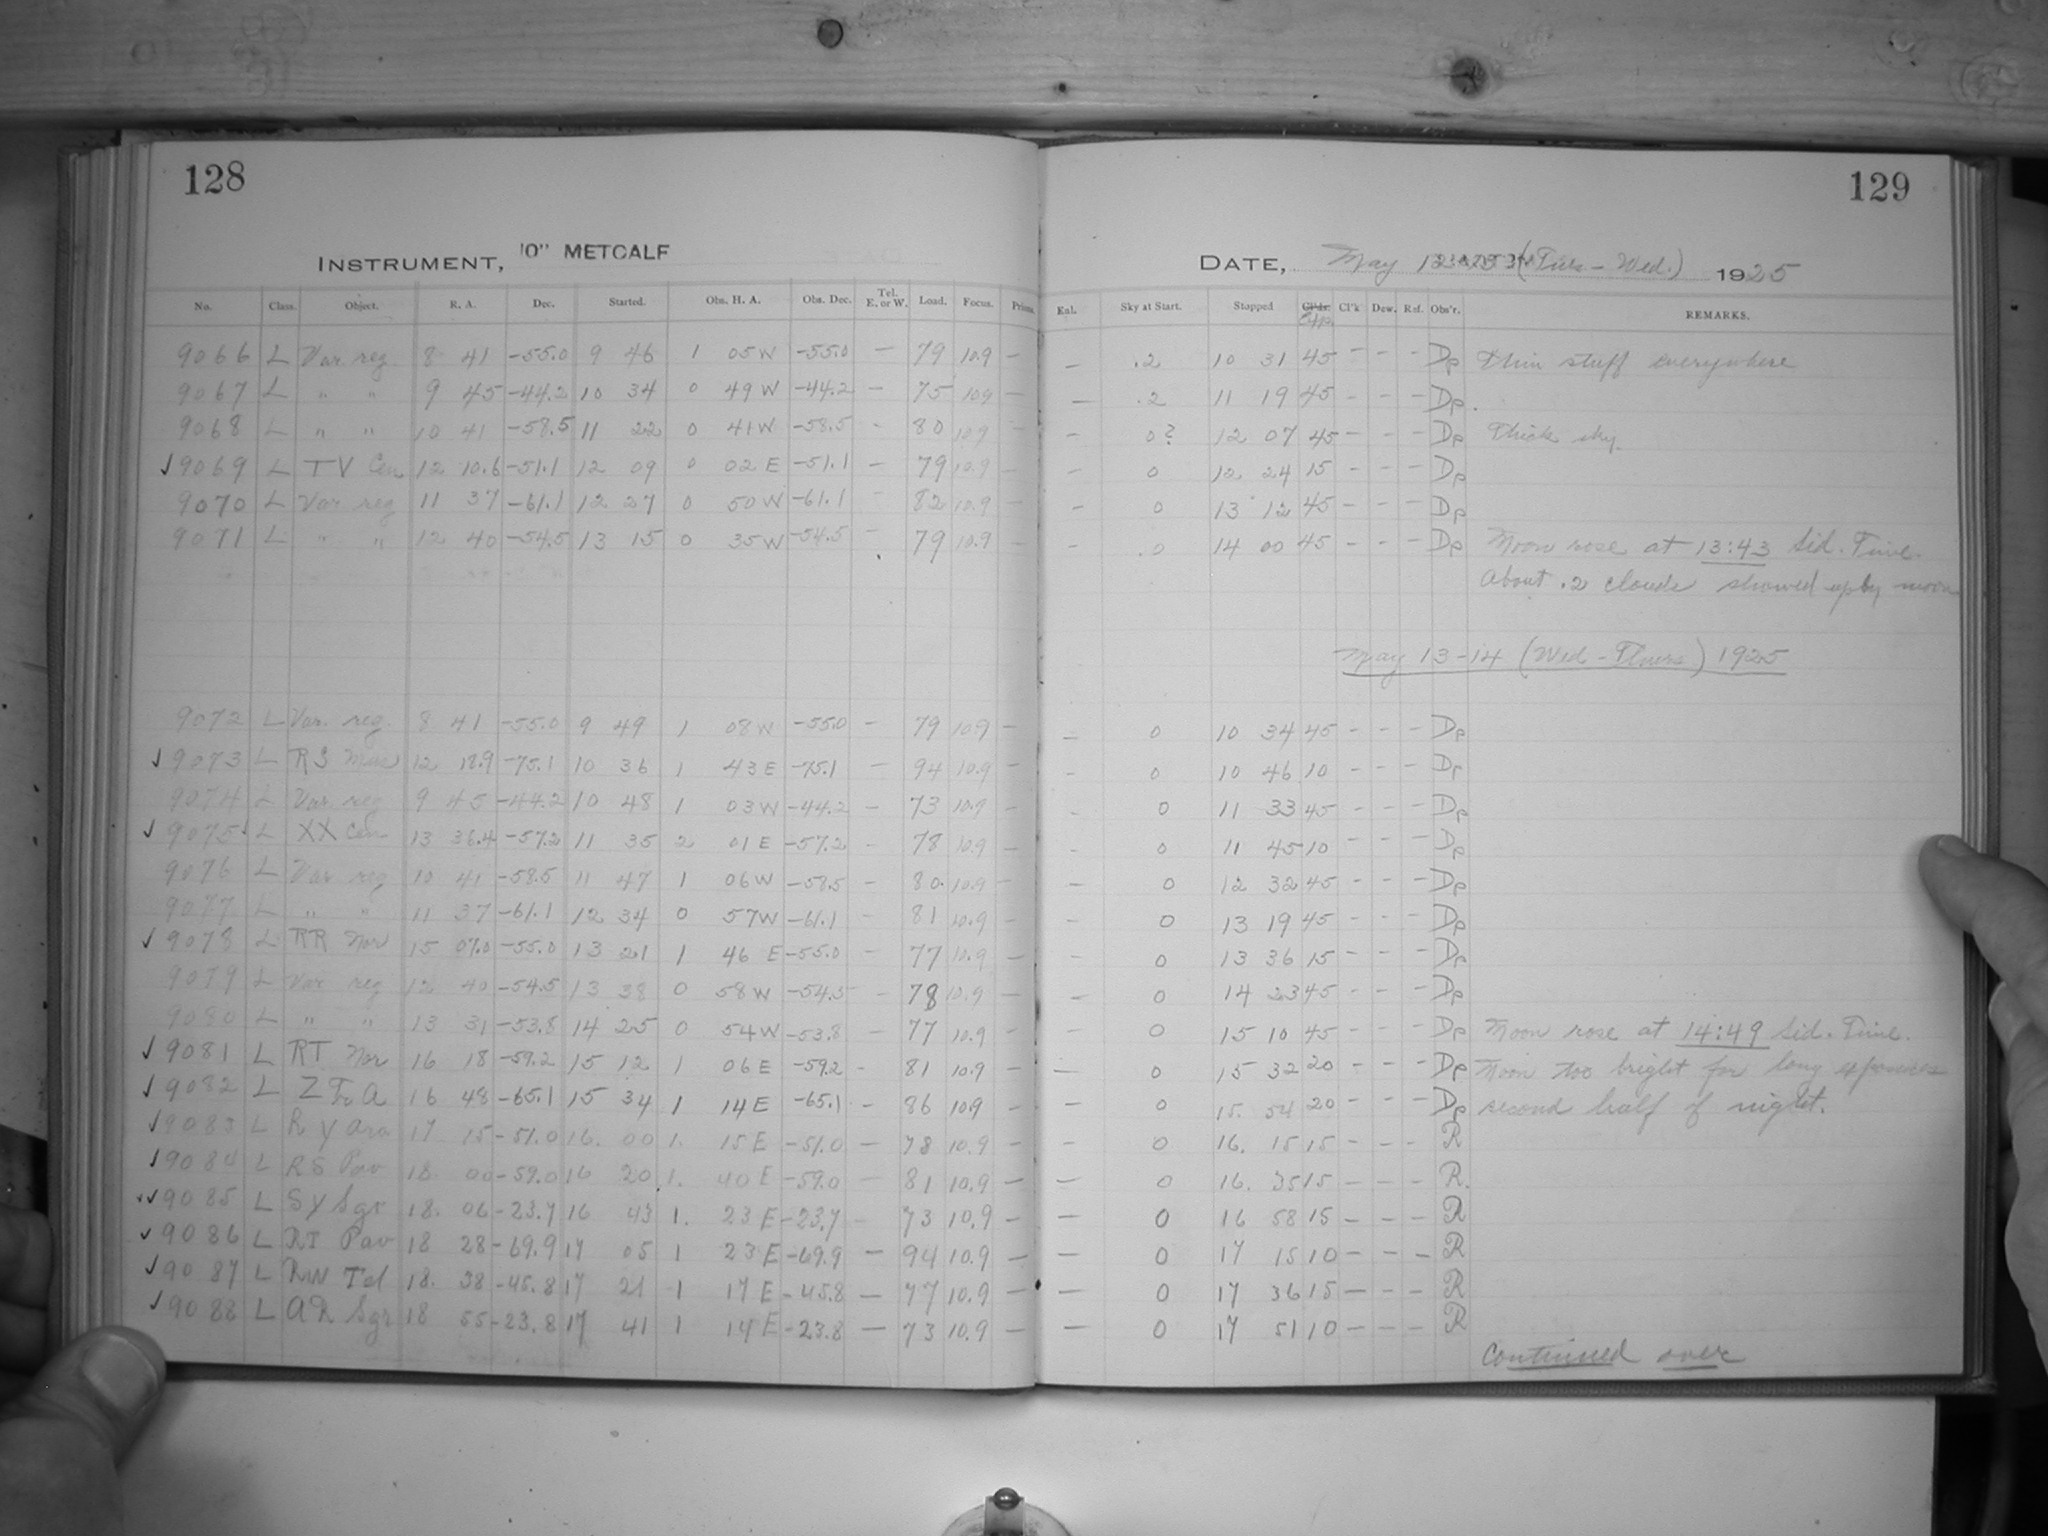 128
INSTRUMENT, 10" METCALF
No. Class. Object. R. A. Dec. Started. Obs. H. A. Obs. Dec. Tel. E. or W. Load. Focus.
9066 L Var reg. 8 41 -55.0 9 46 1 05 W -55.0 — 79 10.9 —
9067 L " " 9 45 -44.2 10 34 0 49 W -44.2 - 75 10.9 —
9068 L " " 10 41 -58.5 11 22 0 41 W -58.5 - 80 10.9 —
✓9069 L TV Cen 12 10.6 -51.1 12 09 0 02 E -51.1 — 79 10.9 —
9070 L Var reg 11 37 -61.1 12 27 0 50 W -61.1 - 82 10.9 —
9071 L " " 12 40 -54.5 13 15 0 35 W -54.5 - 79 10.9 —
9072 L Var. reg. 8 41 -55.0 9 49 1 08 W -55.0 — 79 10.9 —
✓9073 L RS Mus 12 18.9 -75.1 10 36 1 43 E -75.1 — 94 10.9 —
9074 L Var. reg 9 45 -44.2 10 48 1 03 W -44.2 - 73 10.9 —
✓9075 L XX Cen 13 36.4 -57.2 11 35 2 01 E -57.2 - 78 10.9 —
9076 L Var reg 10 41 -58.5 11 47 1 06 W -58.5 - 80 10.9 —
9077 L " " 11 37 -61.1 12 34 0 57 W -61.1 - 81 10.9 —
✓9078 L RR Nor 15 07.0 -55.0 13 21 1 46 E -55.0 - 77 10.9 —
9079 L Var reg 12 40 -54.5 13 38 0 58 W -54.5 - 78 10.9 —
9080 L " " 13 31 -53.8 14 25 0 54 W -53.8 - 77 10.9 —
✓9081 L RT Nor 16 18 -59.2 15 12 1 06 E -59.2 - 81 10.9 —
✓9082 L Z TrA 16 48 -65.1 15 34 1 14 E -65.1 - 86 10.9 —
✓9083 L RY Ara 17 15 -51.0 16. 00 1. 15 E -51.0 — 78 10.9 —
✓9084 L RS Pav 18 00 -59.0 16 20 1. 40 E -59.0 — 81 10.9 —
✓9085 L SY Sgr 18. 06 -23.7 16 43 1. 23 E -23.7 - 73 10.9 —
✓9086 L RT Pav 18 28 -69.9 17 05 1 23 E -69.9 — 94 10.9 —
✓9087 L RW Tel 18. 38 -45.8 17 21 1 17 E -45.8 — 77 10.9 —
✓9088 L AR Sgr 18 55 -23.8 17 41 1 14 E -23.8 — 73 10.9 —
129
DATE, May (Tues - Wed.) 1925
Enl. Sky at Start. Stopped Exp. Cl'k Dew. Ref. Obs'r. REMARKS.
— .2 10 31 45 - - - Dp Thin stuff everywhere
— .2 11 19 45 - - - Dp.
— 0? 12 07 45 - - - Dp Thick sky.
— 0 12 24 15 - - - Dp
— 0 13 12 45 - - - Dp
— .0 14 00 45 - - - Dp Moon rose at 13:43 Sid. Time.
About .2 clouds showed up by moon
May 13-14 (Wed - Thurs) 1925
— 0 10 34 45 - - - Dp
— 0 10 46 10 - - - Dp
- 0 11 33 45 - - - Dp
- 0 11 45 10 - - - Dp
— 0 12 32 45 - - - Dp
— 0 13 19 45 - - - Dp
0 13 36 15 - - - Dp
— 0 14 23 45 - - - Dp
— 0 15 10 45 - - - Dp Moon rose at 14:49 Sid. Time.
— 0 15 32 20 - - - Dp Moon too bright for long exposures
— 0 15. 54 20 - - - Dp second half of night.
— 0 16. 15 15 - - - R
— 0 16. 35 15 - - - R.
— 0 16 58 15 - - - R
— 0 17 15 10 - - - R
— 0 17 36 15 - - - R
— 0 17 51 10 - - - R
Continued over